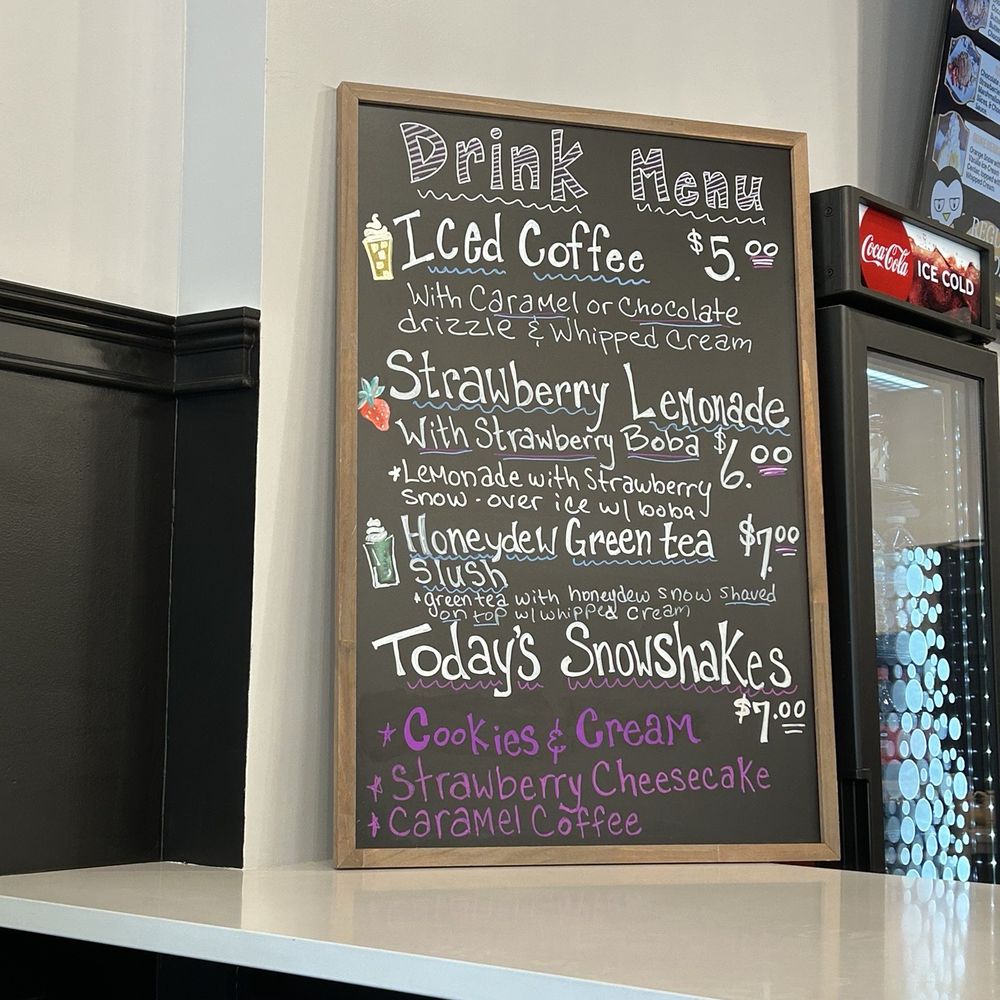 Drink Menu
Iced Coffee $5.00
With Caramel or Chocolate
drizzle & Whipped Cream
Strawberry Lemonade
With Strawberry Boba $6.00
*Lemonade with Strawberry
snow - over ice w/ boba
Honeydew Green tea $7.00
Slush
*green tea with honeydew snow shaved
on top w/ whipped cream
Today's Snowshakes
$7.00
* Cookies & Cream
* Strawberry Cheesecake
* Caramel Coffee
Coca-Cola ICE COLD